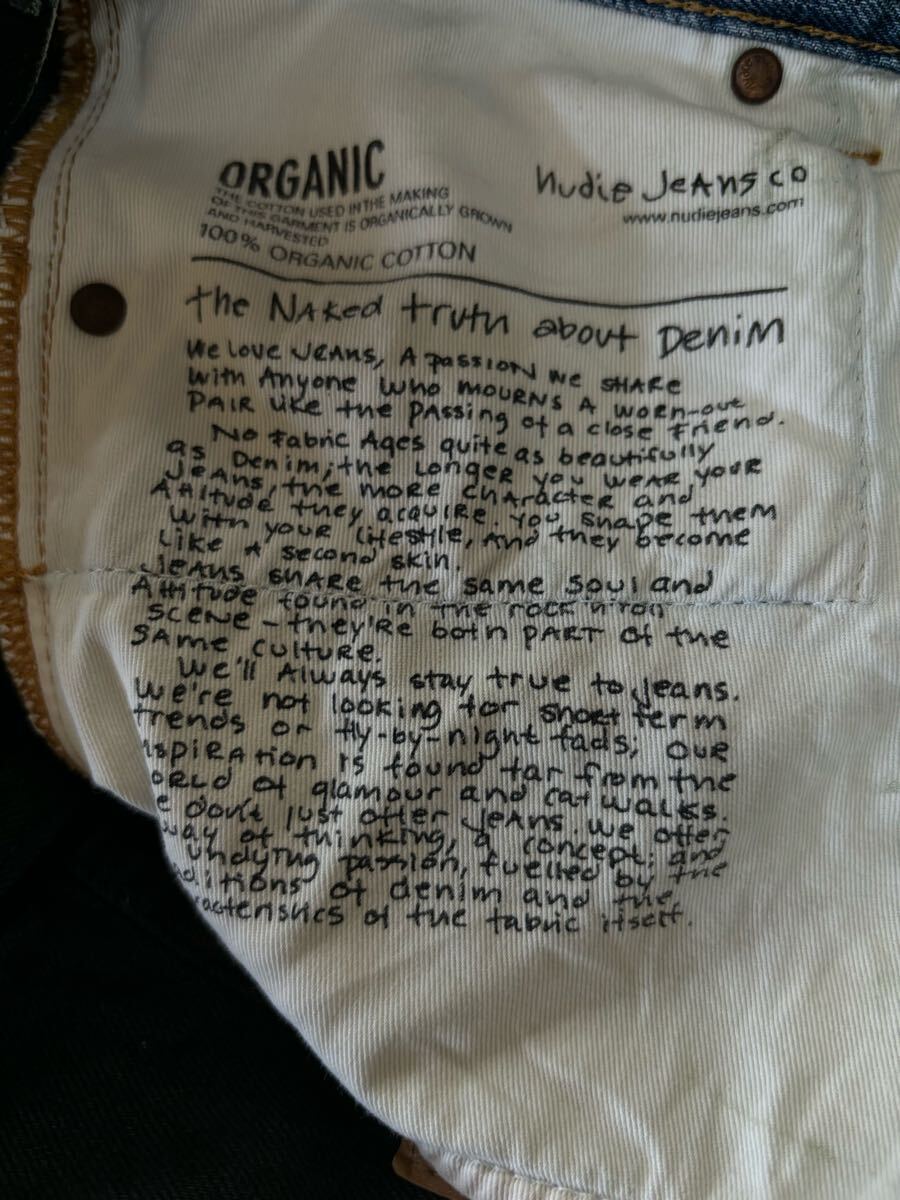 ORGANIC
THE COTTON USED IN THE MAKING
OF THIS GARMENT IS ORGANICALLY GROWN
AND HARVESTED
100% ORGANIC COTTON
Nudie Jeans co
www.nudiejeans.com
the Naked truth about Denim
We love Jeans, A passion we share
with Anyone who mourns A worn-out
pair like the passing of a close friend.
No fabric Ages quite as beautifully
as Denim; the longer you wear your
Jeans, the more character and
Attitude they acquire. You shape them
with your lifestlie, and they become
like a second skin.
Jeans share the same soul and
Attitude found in the rock'n'roll
scene – they're both part of the
same culture.
We'll Always stay true to jeans.
We're not looking for short term
trends or fly-by-night fads; our
nspiration is found far from the
orld of glamour and catwalks.
e don't just offer jeans. We offer
way of thinking, a concept; and
undying passion, fuelled by the
ditions of denim and the
racteristics of the fabric itself.